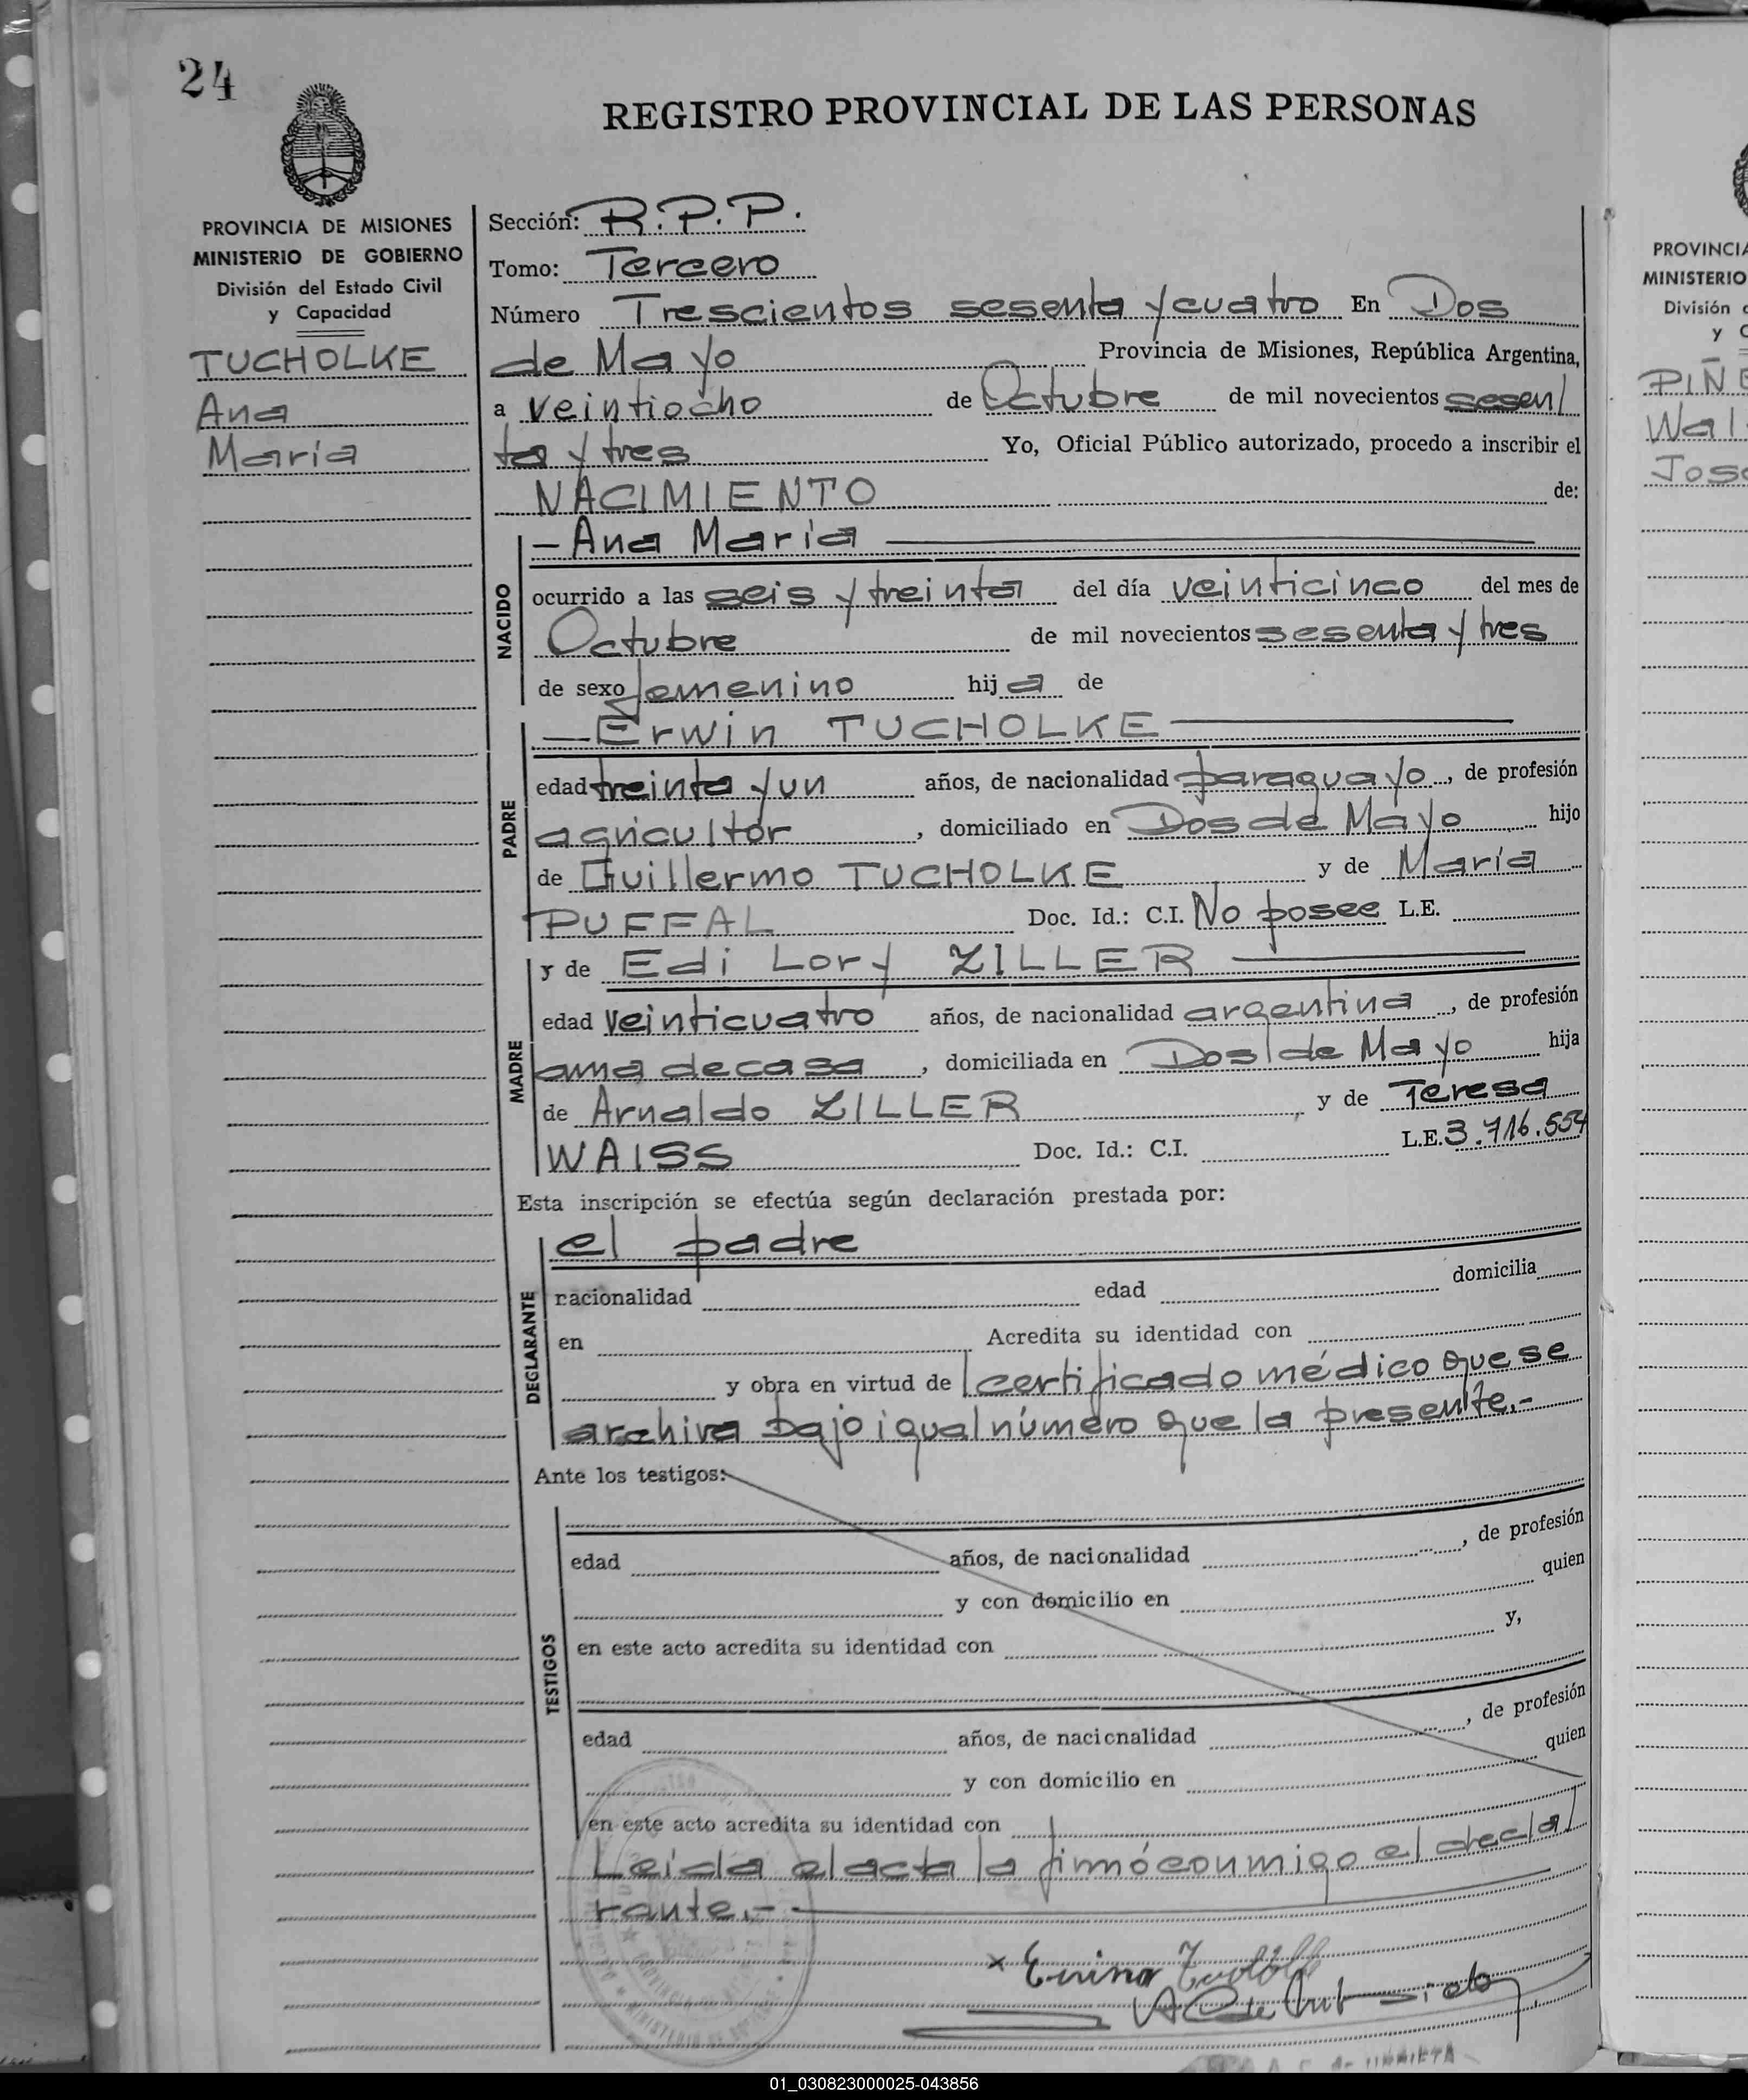 24
REGISTRO PROVINCIAL DE LAS PERSONAS
PROVINCIA DE MISIONES
MINISTERIO DE GOBIERNO
División del Estado Civil
y Capacidad
TUCHOLKE
Ana
María
Sección: R.P.P.
Tomo: Tercero
Número Trescientos sesenta y cuatro En Dos
de Mayo Provincia de Misiones, República Argentina,
a veintiocho de Octubre de mil novecientos sesen/
ta y tres Yo, Oficial Público autorizado, procedo a inscribir el
NACIMIENTO de:
NACIDO
— Ana María —
ocurrido a las seis y treinta del día veinticinco del mes de
Octubre de mil novecientos sesenta y tres
de sexo femenino hija de
PADRE
— Erwin TUCHOLKE —
edad treinta y un años, de nacionalidad paraguayo, de profesión
agricultor, domiciliado en Dos de Mayo hijo
de Guillermo TUCHOLKE y de María
PUFFAL Doc. Id.: C.I. No posee L.E.
MADRE
y de Edi Lory ZILLER —
edad veinticuatro años, de nacionalidad argentina, de profesión
ama de casa, domiciliada en Dos de Mayo hija
de Arnaldo ZILLER, y de Teresa
WAISS Doc. Id.: C.I. L.E. 3.716.554
Esta inscripción se efectúa según declaración prestada por:
DECLARANTE
el padre
nacionalidad edad domicilia
en Acredita su identidad con
y obra en virtud de certificado médico que se
archiva bajo igual número que la presente.-
Ante los testigos:
TESTIGOS
edad años, de nacionalidad , de profesión
y con domicilio en quien
en este acto acredita su identidad con y,
edad años, de nacionalidad , de profesión
y con domicilio en quien
en este acto acredita su identidad con
Leída el acta la firmó conmigo el decla/
rante.- —
x
PROVINCIA
MINISTERIO
División
y
PIÑ
Wal
Jos
01_030823000025-043856